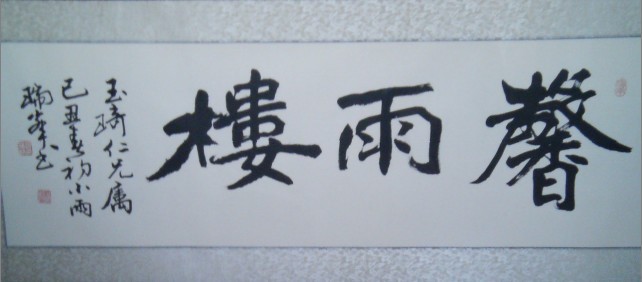 馨雨樓
玉琦仁兄属
己丑春初小雨
瑞峯书